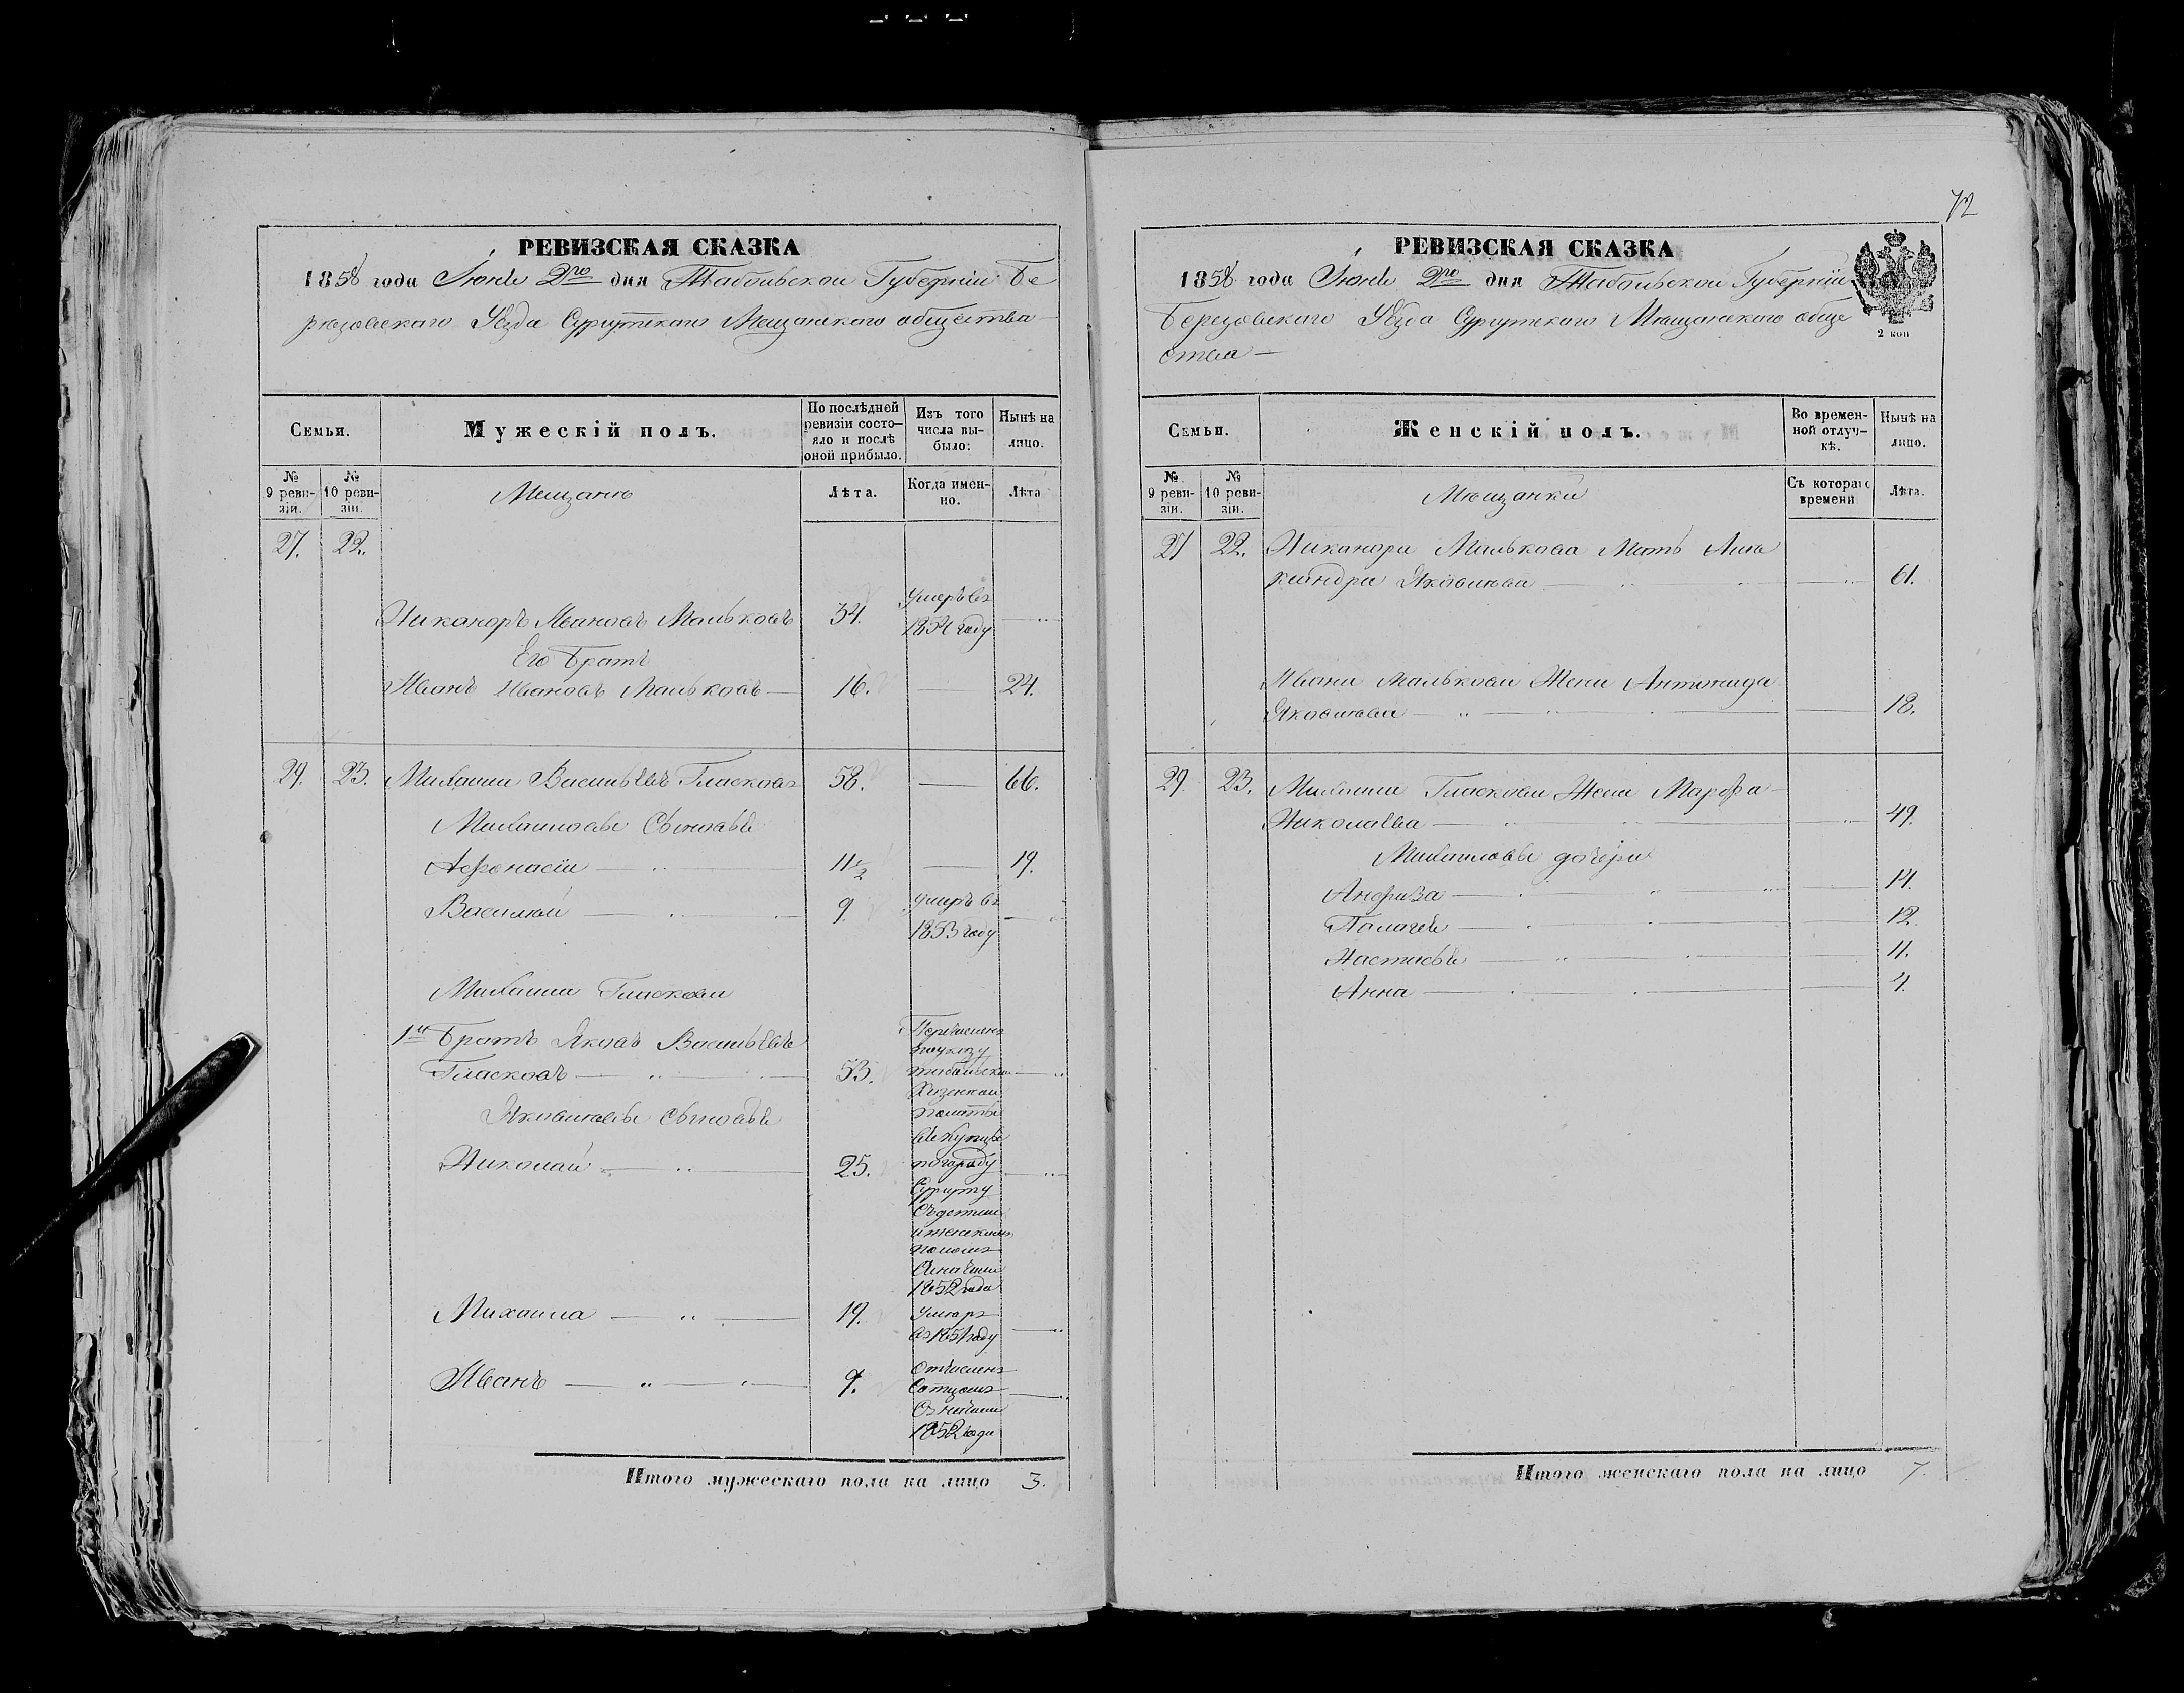 72
РЕВИЗСКАЯ СКАЗКА
1858 года Іюня 2го дня Табольской Губерніи Бе
резовскаго Уѣзда Сургутскаго Мещанскаго общества
Семьи.
Мужескій полъ.
По послѣдней ревизіи состо-
яло и послѣ
оной прибыло.
Изъ того
числа вы-
было:
Нынѣ на
лицо.
№
9 реви-
зіи.
№
10 реви-
зіи.
Мещане
Лѣта.
Когда имен-
но.
Лѣта
27. 22.
Никаноръ Ивановъ Мальковъ 34. умеръ въ
1854 году
Его Братъ
Иванъ Ивановъ Мальковъ 16. 24.
29. 23. Михаила Васильевъ Гласковъ 58. 66.
Михаиловы Сыновья
Афонасіи 11½ 19.
Василюи 9 умеръ въ
1853 году
Михаила Гласкова
1й Братъ Яковъ Васильевъ
Гласковъ 53. Перечисленъ
по указу
Табольской
Казенной
полаты
въ Купцы
по городу
Сургуту
Съ детьми
и женскимъ
поломъ
Съ начала
1852 года
Яковлевы Сыновья
Николаи 25.
Михаила 19. умеръ
въ 1851 году
Иванъ 7. Отчисленъ
Сотцомъ
Съ начала
1852 года
Итого мужескаго пола на лицо 3.
РЕВИЗСКАЯ СКАЗКА
1858 года Іюня 2го дня Табольской Губерніи
Березовскаго Уѣзда Сургутскаго Мещанскаго обще
ства
2 коп
Семьи.
Женскій полъ.
Во времен-
ной отлуч-
кѣ.
Нынѣ на
лицо.
№
9 реви-
зіи.
№
10 реви-
зіи.
Мещанки
Съ котораго
времени
Лѣта.
27 22. Никанора Малькова Мать Алек
сандра Яковлева 61.
Ивана Малькова Жена
Яковлева 18.
29. 23. Михаила Гласкова Жена Марфа
Николаева 49.
Михаиловы дочери
Анфиза 14.
Палагея 12.
Настасья 11.
Анна 4.
Итого женскаго пола на лицо 7.